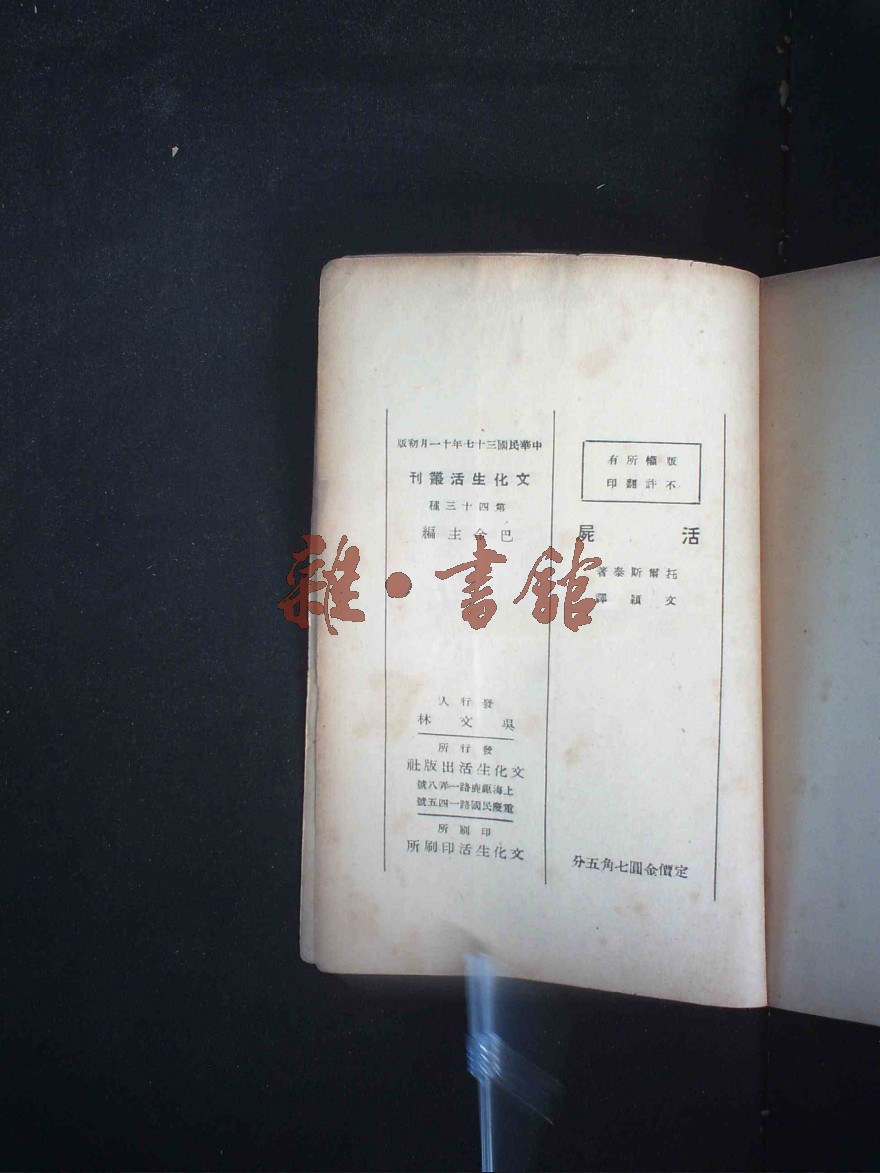 版權所有
不許翻印
活屍
托爾斯泰著
文穎譯
定價金圓七角五分
中華民國三十七年十一月初版
文化生活叢刊
第四十三種
巴金主編
發行人
吳文林
發行所
文化生活出版社
上海鉅鹿路一弄八號
重慶民國路一四五號
印刷所
文化生活印刷所
雜·書館